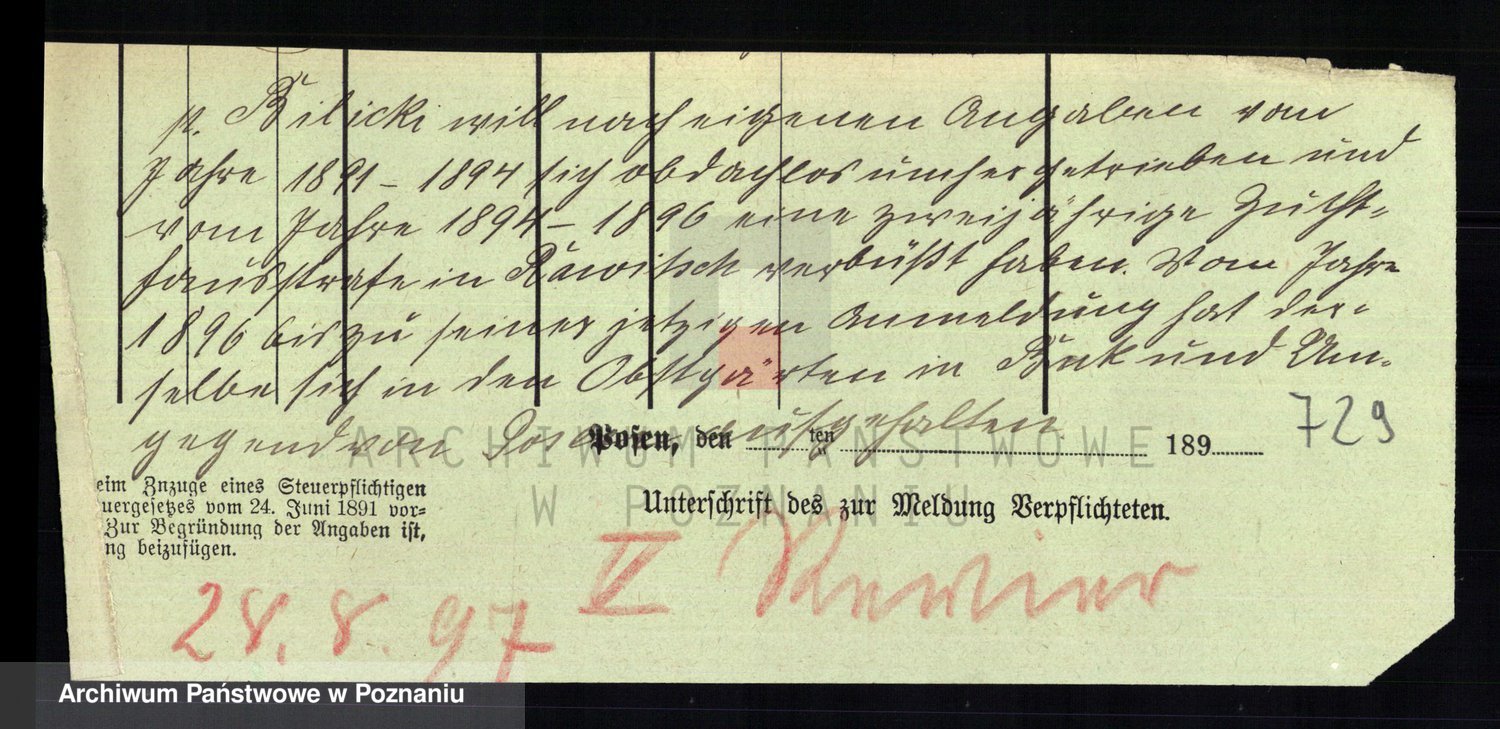 p. Bilicki will nach eigenen Angaben vom
Jahre 1891 – 1894 sich obdachlos umhergetrieben und
vom Jahre 1894 – 1896 eine zweijährige Zucht-
hausstrafe in Rawitsch verbüßt haben. Vom Jahre
1896 bis zu seiner jetzigen Anmeldung hat der-
selbe sich in den Obstgärten in Buk und Um-
gegend von Posen aufgehalten
729
Posen, den ten 189
eim Znzuge eines Steuerpflichtigen
uergesetzes vom 24. Juni 1891 vor-
Zur Begründung der Angaben ist,
ng beizufügen.
Unterschrift des zur Meldung Verpflichteten.
V Revier
28. 8. 97
ARCHIWUM PAŃSTWOWE
W POZNANIU
Archiwum Państwowe w Poznaniu